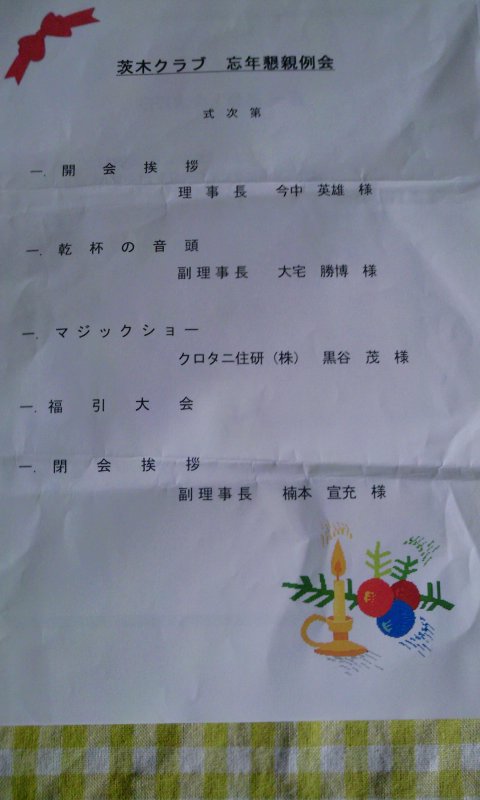 茨木クラブ　忘年懇親例会
式　次　第
一．開　会　挨　拶
理　事　長　　今中　英雄　様
一．乾　杯　の　音　頭
副理事長　　大宅　勝博　様
一．マジックショー
クロタニ住研（株）　黒谷　茂　様
一．福　引　大　会
一．閉　会　挨　拶
副理事長　　楠本　宣充　様